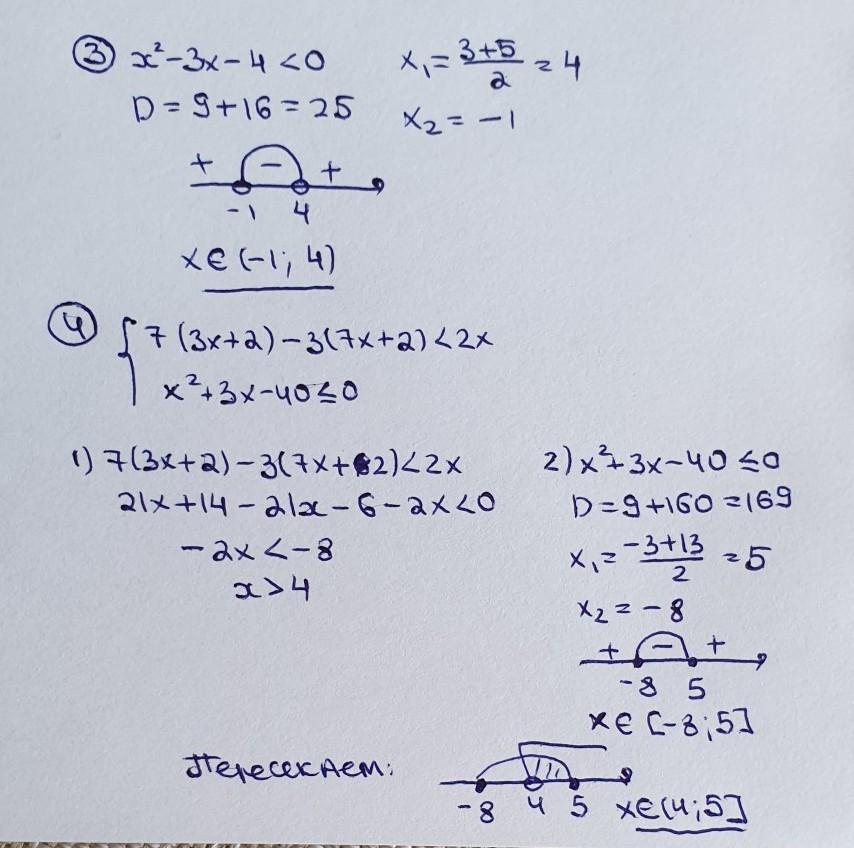 ③ x²-3x-4<0 x₁=(3+5)/2=4
D=9+16=25 x₂=-1
+ - +
-1 4
x∈(-1; 4)
④ { 7(3x+2)-3(7x+2)<2x
x²+3x-40≤0
1) 7(3x+2)-3(7x+2)<2x
21x+14-21x-6-2x<0
-2x<-8
x>4
2) x²+3x-40≤0
D=9+160=169
x₁=(-3+13)/2=5
x₂=-8
+ - +
-8 5
x∈[-8;5]
Пересекаем:
-8 4 5 x∈(4;5]